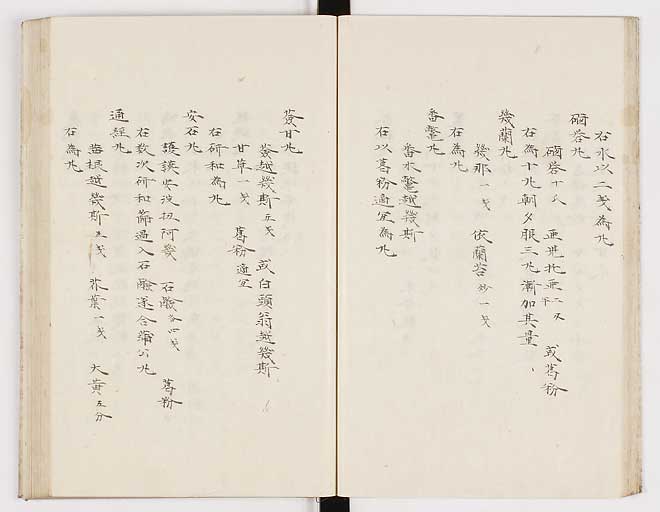 右水以二戔為丸
硇砦丸
硇砦十人 亜児托亜二又 或葛粉
右為十丸朝夕服三丸漸加其量
幾蘭丸
幾那一戔 依蘭苔炒一戔
右為丸
番鼈丸
番木鼈越幾斯
右以葛粉適宜為丸
薟甘丸
薟越幾斯五戔 或白頭翁越幾斯
甘草一戔 葛粉適宜
右研和為丸
安石丸
護謨安没扭阿幾 石鹸各四戔 葛粉
右数次研和篩過入石鹸遂合蒲公丸
通經丸
茜根越幾斯五戔 芥葉一戔 大黄五分
右為丸